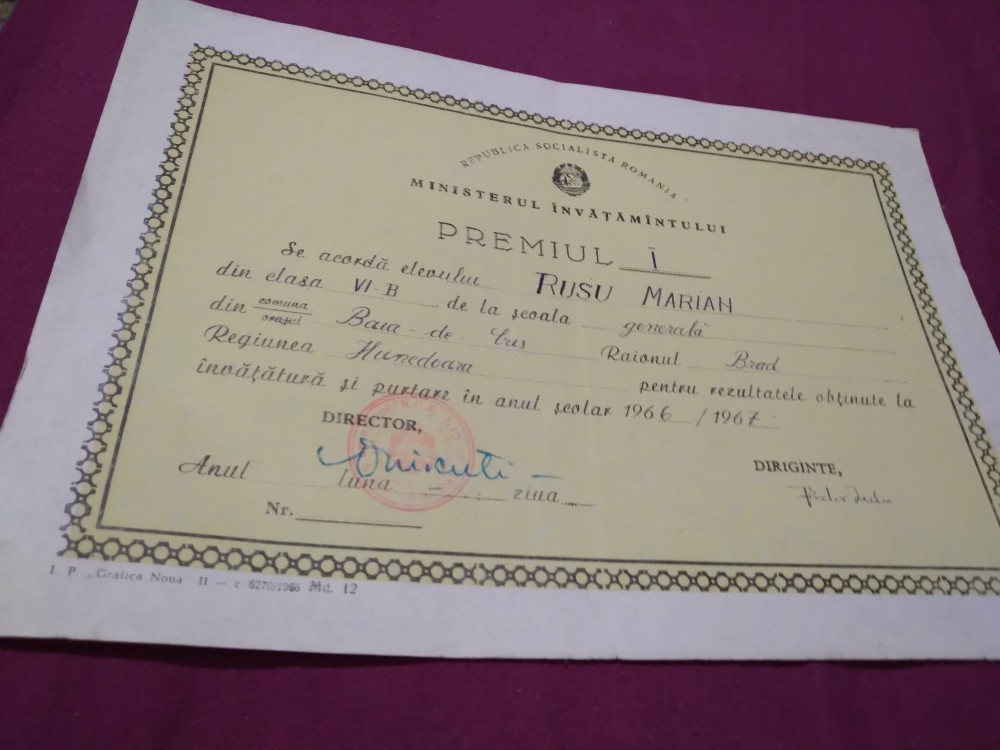 REPUBLICA SOCIALISTĂ ROMÂNIA
MINISTERUL ÎNVĂŢĂMÎNTULUI
PREMIUL I
Se acordă elevului RUSU MARIAN
din clasa VI-B de la şcoala generală
din comuna oraşul Baia-de Criş Raionul Brad
Regiunea Hunedoara pentru rezultatele obţinute la
învăţătură şi purtare în anul şcolar 1966/1967
DIRECTOR,
DIRIGINTE,
Anul luna ziua
Nr.
I. P. „Grafica Nouă" II — c 6270/1966 Md. 12